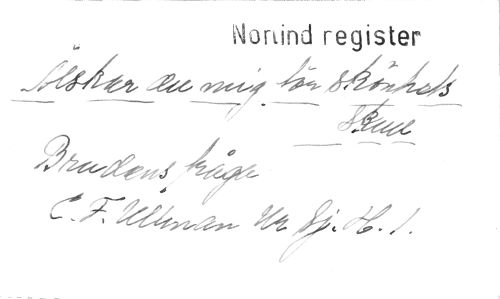 Norlind register
Älskar du mig för skönhets
skull
Brudens fråga
C. F. Ullman Ur Sv. H. 1.